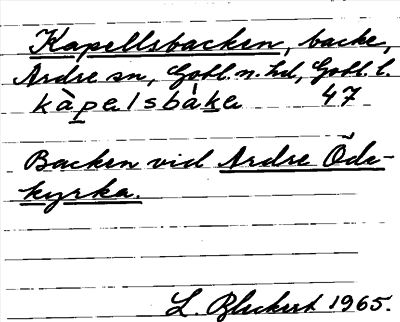 Kapellsbacken, backe,
Ardre sn, Gotl. n. hd, Gotl. l.
kàpelsbàke 47
Backen vid Ardre Öde-
kyrka.
L. 1965.